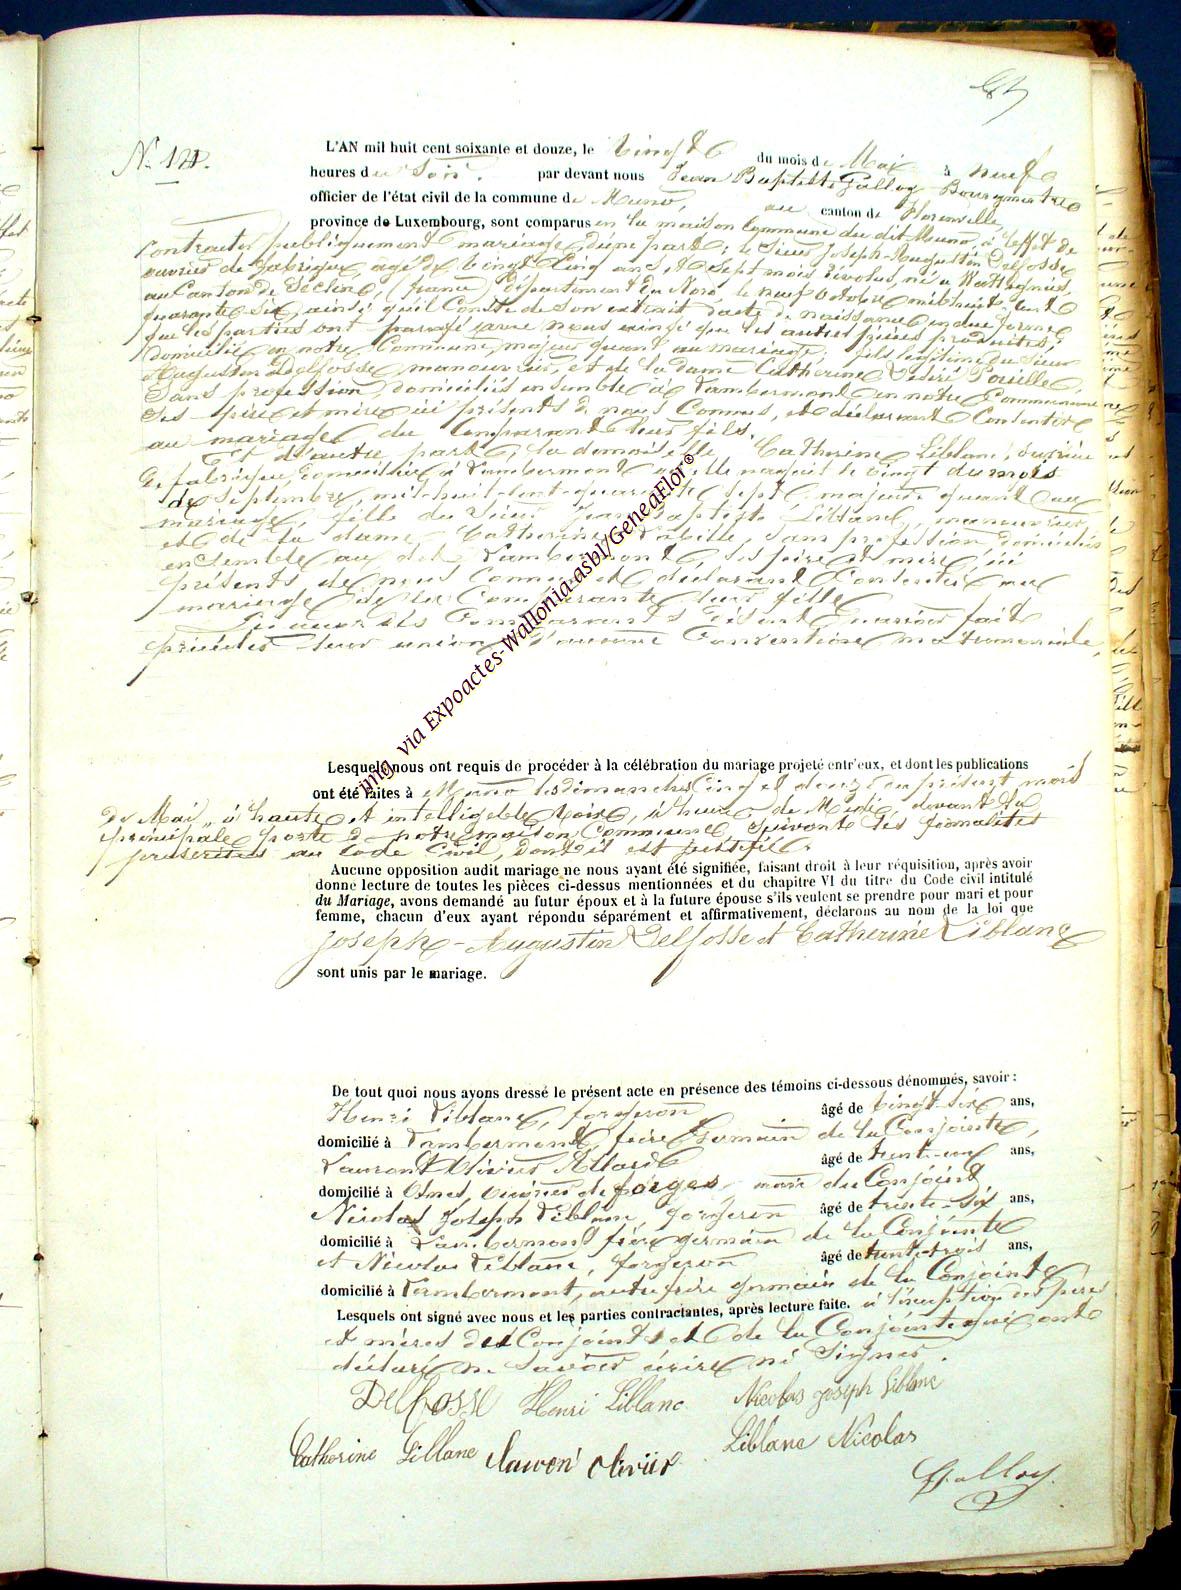 N.
L'AN mil huit cent soixante et douze, le Vingt du mois de Mai à neuf
heures du Soir. par devant nous Jean Baptiste Galloy Bourgmestre
officier de l'état civil de la commune de Muno, au canton de Florenville
province de Luxembourg, sont comparus en la maison Commune du dit Muno, à l'effet de
Contracter publiquement mariage, d'une part; le Sieur Joseph-Augustin Delfosse
ouvrier de fabrique, âgé de vingt Cinq ans et Sept mois révolus, né à Wattignies,
au Canton de Séclin (france) Département du Nord, le neuf octobre mil huit cent
quarante Six, ainsi qu'il Conste de Son extrait d'acte de naissance en due forme
que les parties ont par nous ainsi que les autres pièces produites;
domicilié en notre Commune, majeur quant au mariage; fils légitime du Sieur
Augustin Delfosse, manouvrier, et de la dame Catherine Désiré
Sans profession, domiciliés ensemble à Lambermont en notre Commune
Ses père et mère ici présents de nous Connus, et déclarant Consentir
au mariage du Comparant leur fils.
Et d'autre part, la demoiselle Catherine Liblanc, ouvrière
de fabrique, domiciliée à Lambermont où elle naquit le vingt du mois
de Septembre, mil-huit-cent-quarante sept, majeure quant au
mariage, fille du Sieur Jean Baptiste Liblanc, manouvrier,
et de la dame Catherine Labille, Sans profession domiciliés
ensemble au dit Lambermont, ses père et mère, ici
présents de nous Connus et déclarant Consentir au
mariage de la Comparante leur fille
Lesquels Comparants disent n'avoir fait
précéder leur union d'aucune Convention matrimoniale,
Lesquels nous ont requis de procéder à la célébration du mariage projeté entr'eux, et dont les publications
ont été faites à Muno les dimanches Cinq et douze du présent mois
de Mai, à haute et intelligible voix, à l'heure de Midi devant la
principale porte de notre maison Commune, Suivant les formalités
prescrites au Code Civil, dont il est justifié.
Aucune opposition audit mariage ne nous ayant été signifiée, faisant droit à leur réquisition, après avoir
donné lecture de toutes les pièces ci-dessus mentionnées et du chapitre VI du titre du Code civil intitulé
du Mariage, avons demandé au futur époux et à la future épouse s'ils veulent se prendre pour mari et pour
femme, chacun d'eux ayant répondu séparément et affirmativement, déclarons au nom de la loi que
Joseph-Augustin Delfosse et Catherine Liblanc
sont unis par le mariage.
De tout quoi nous avons dressé le présent acte en présence des témoins ci-dessous dénommés, savoir:
Henri Liblanc, forgeron âgé de vingt-six ans,
domicilié à Lambermont, frère Germain de la Conjointe,
Laurent Olivier Allard âgé de trente-un ans,
domicilié à Osnes, ouvrier de forges, du Conjoint
Nicolas Joseph Liblanc, forgeron âgé de trente-six ans,
domicilié à Lambermont frère germain de la Conjointe
et Nicolas Liblanc, forgeron âgé de trente-trois ans,
domicilié à Lambermont, autre frère germain de la Conjointe
Lesquels ont signé avec nous et les parties contractantes, après lecture faite. à l'exception des pères
et mères du Conjoint et de la Conjointe qui ont
déclaré ne Savoir écrire ni Signer.
Delfosse Henri Liblanc Nicolas joseph Liblanc
Catherine Liblanc Lauren olivier Liblanc Nicolas
Galloy
img via Expoactes-Wallonia asbl/GeneaFlor®